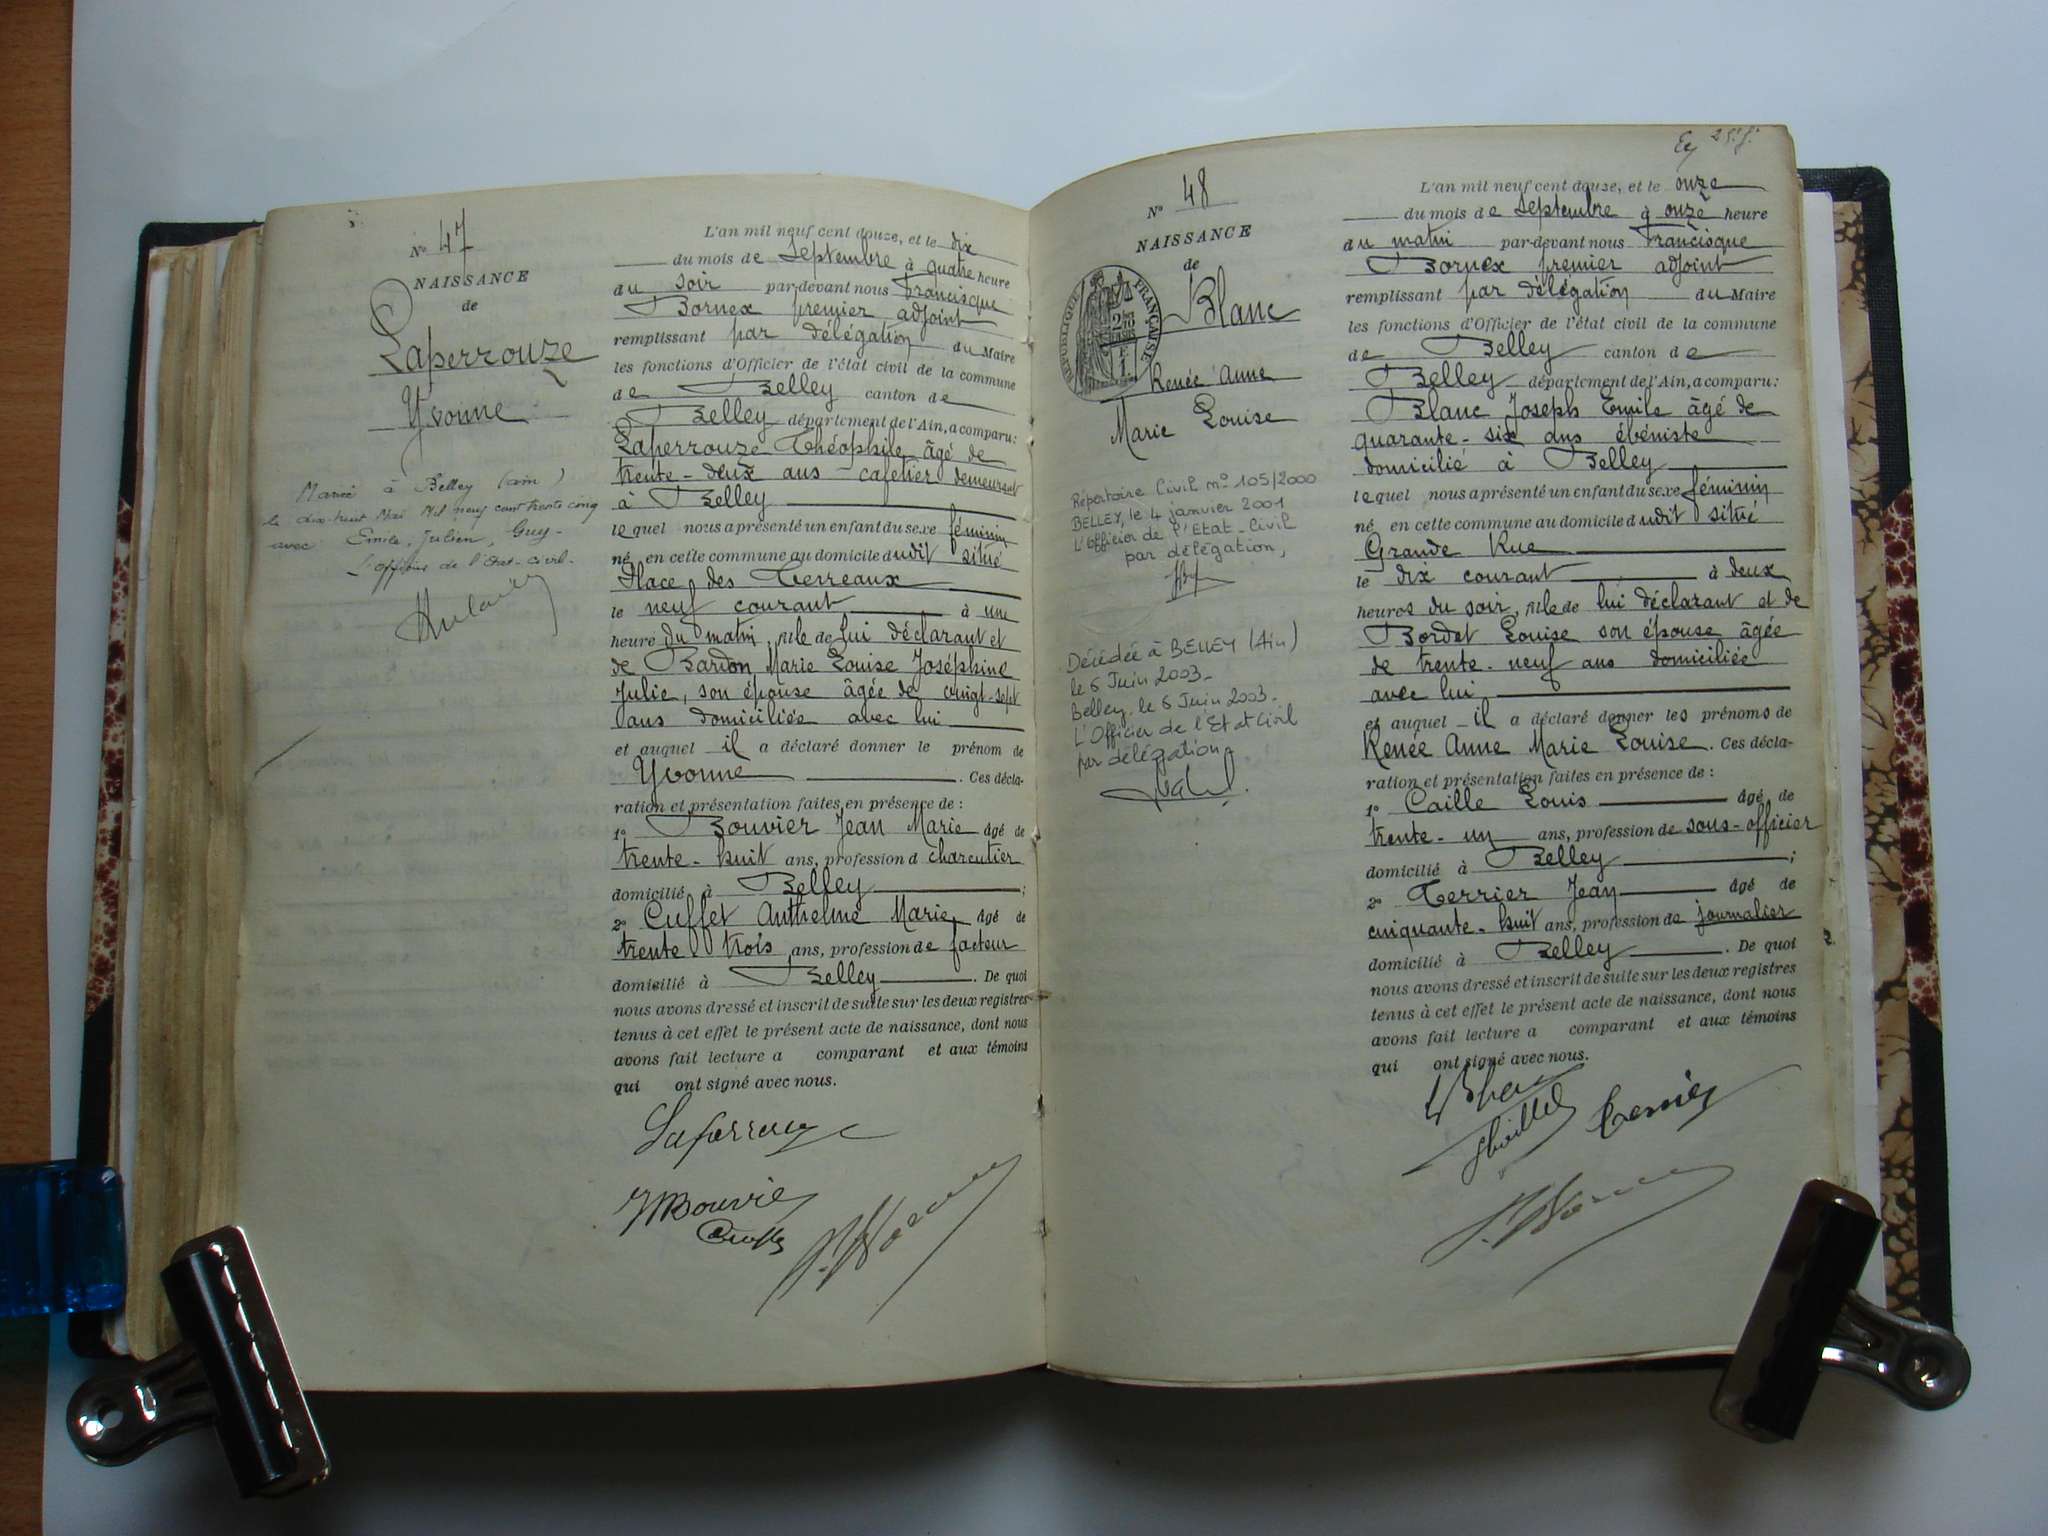 N° 47
NAISSANCE
de
Laperrouze
Yvonne
Mariée à Belley (ain)
le dix-huit Mai Mil neuf cent trente cinq
avec Emile, Julien, Guy-
L'officier de l'Etat-Civil-
L'an mil neuf cent douze, et le dix
du mois de Septembre à quatre heure
du soir par-devant nous Francisque
Bornex premier adjoint
remplissant par délégation du Maire
les fonctions d'Officier de l'état civil de la commune
de Belley canton de
Belley département de l'Ain, a comparu:
Laperrouze Théophile âgé de
trente-deux ans cafetier demeurant
à Belley
lequel nous a présenté un enfant du sexe féminin
né en cette commune au domicile dudit situé
Place des Terreaux
le neuf courant à une
heure du matin, fille de lui déclarant et
de Bardon Marie Louise Joséphine
Julie, son épouse âgée de vingt-sept
ans domiciliée avec lui
et auquel il a déclaré donner le prénom de
Yvonne . Ces décla-
ration et présentation faites en présence de :
1° Bouvier Jean Marie âgé de
trente-huit ans, profession d charcutier
domicilié à Belley ;
2° Cuffet Anthelme Marie âgé de
trente trois ans, profession de facteur
domicilié à Belley . De quoi
nous avons dressé et inscrit de suite sur les deux registres
tenus à cet effet le présent acte de naissance, dont nous
avons fait lecture a comparant et aux témoins
qui ont signé avec nous.
Laperrouze
JMBouvier
Cuffet
F. Bornex
Ey 25. f.
N° 48
NAISSANCE
de
RÉPUBLIQUE FRANÇAISE
Blanc
Renée Anne
Marie Louise
Répertoire Civil n° 105/2000
BELLEY, le 4 janvier 2001
L'Officier de l'Etat-Civil
par délégation,
Décédée à BELLEY (Ain)
le 5 Juin 2003-
Belley, le 6 Juin 2003-
L'Officier de l'Etat Civil
par délégation
L'an mil neuf cent douze, et le onze
du mois de Septembre à onze heure
du matin par-devant nous Francisque
Bornex premier adjoint
remplissant par délégation du Maire
les fonctions d'Officier de l'état civil de la commune
de Belley canton de
Belley département de l'Ain, a comparu:
Blanc Joseph Emile âgé de
quarante-six ans ébéniste
domicilié à Belley
lequel nous a présenté un enfant du sexe féminin
né en cette commune au domicile dudit situé
Grande Rue
le dix courant à deux
heures du soir, fille de lui déclarant et de
Bordet Louise son épouse âgée
de trente-neuf ans domiciliée
avec lui
et auquel il a déclaré donner les prénoms de
Renée Anne Marie Louise. Ces décla-
ration et présentation faites en présence de :
1° Caille Louis âgé de
trente-un ans, profession de sous-officier
domicilié à Belley ;
2° Terrier Jean âgé de
cinquante-huit ans, profession de journalier
domicilié à Belley . De quoi
nous avons dressé et inscrit de suite sur les deux registres
tenus à cet effet le présent acte de naissance, dont nous
avons fait lecture a comparant et aux témoins
qui ont signé avec nous.
Terrier
F. Bornex